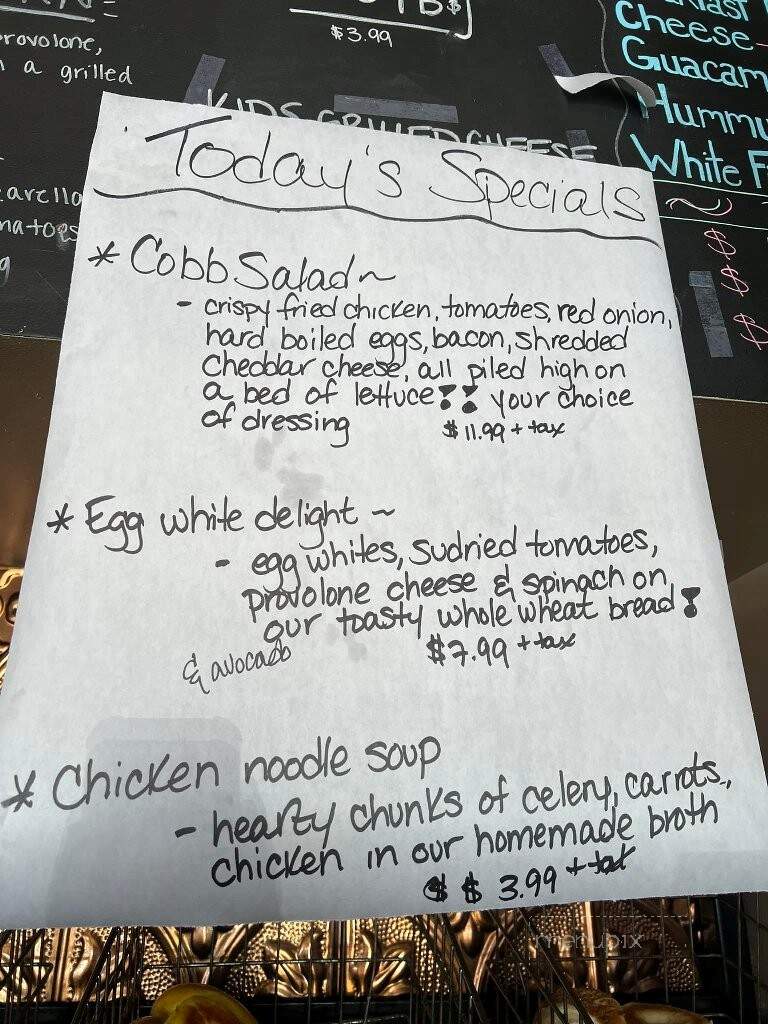 $3.99
provolone,
a grilled
KIDS GRILLED CHEESE
Cheese
White
Today's Specials
* Cobb Salad ~
- crispy fried chicken, tomatoes, red onion,
hard boiled eggs, bacon, shredded
cheddar cheese, all piled high on
a bed of lettuce!! your choice
of dressing $11.99 + tax
* Egg white delight ~
- egg whites, sudried tomatoes,
provolone cheese & spinach on
our toasty whole wheat bread!
& avocado $7.99 + tax
* Chicken noodle soup
- hearty chunks of celery, carrots,
chicken in our homemade broth
$ 3.99 + tax
menupix